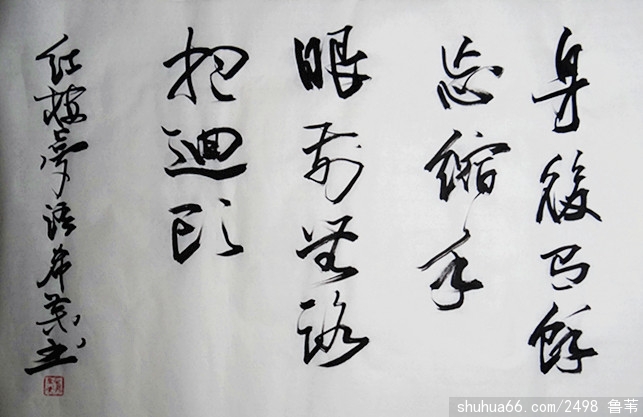 身後有餘
忘縮手
眼前無路
想迴頭
紅樓夢語 希 书
shuhua66.com/2498 鲁苇